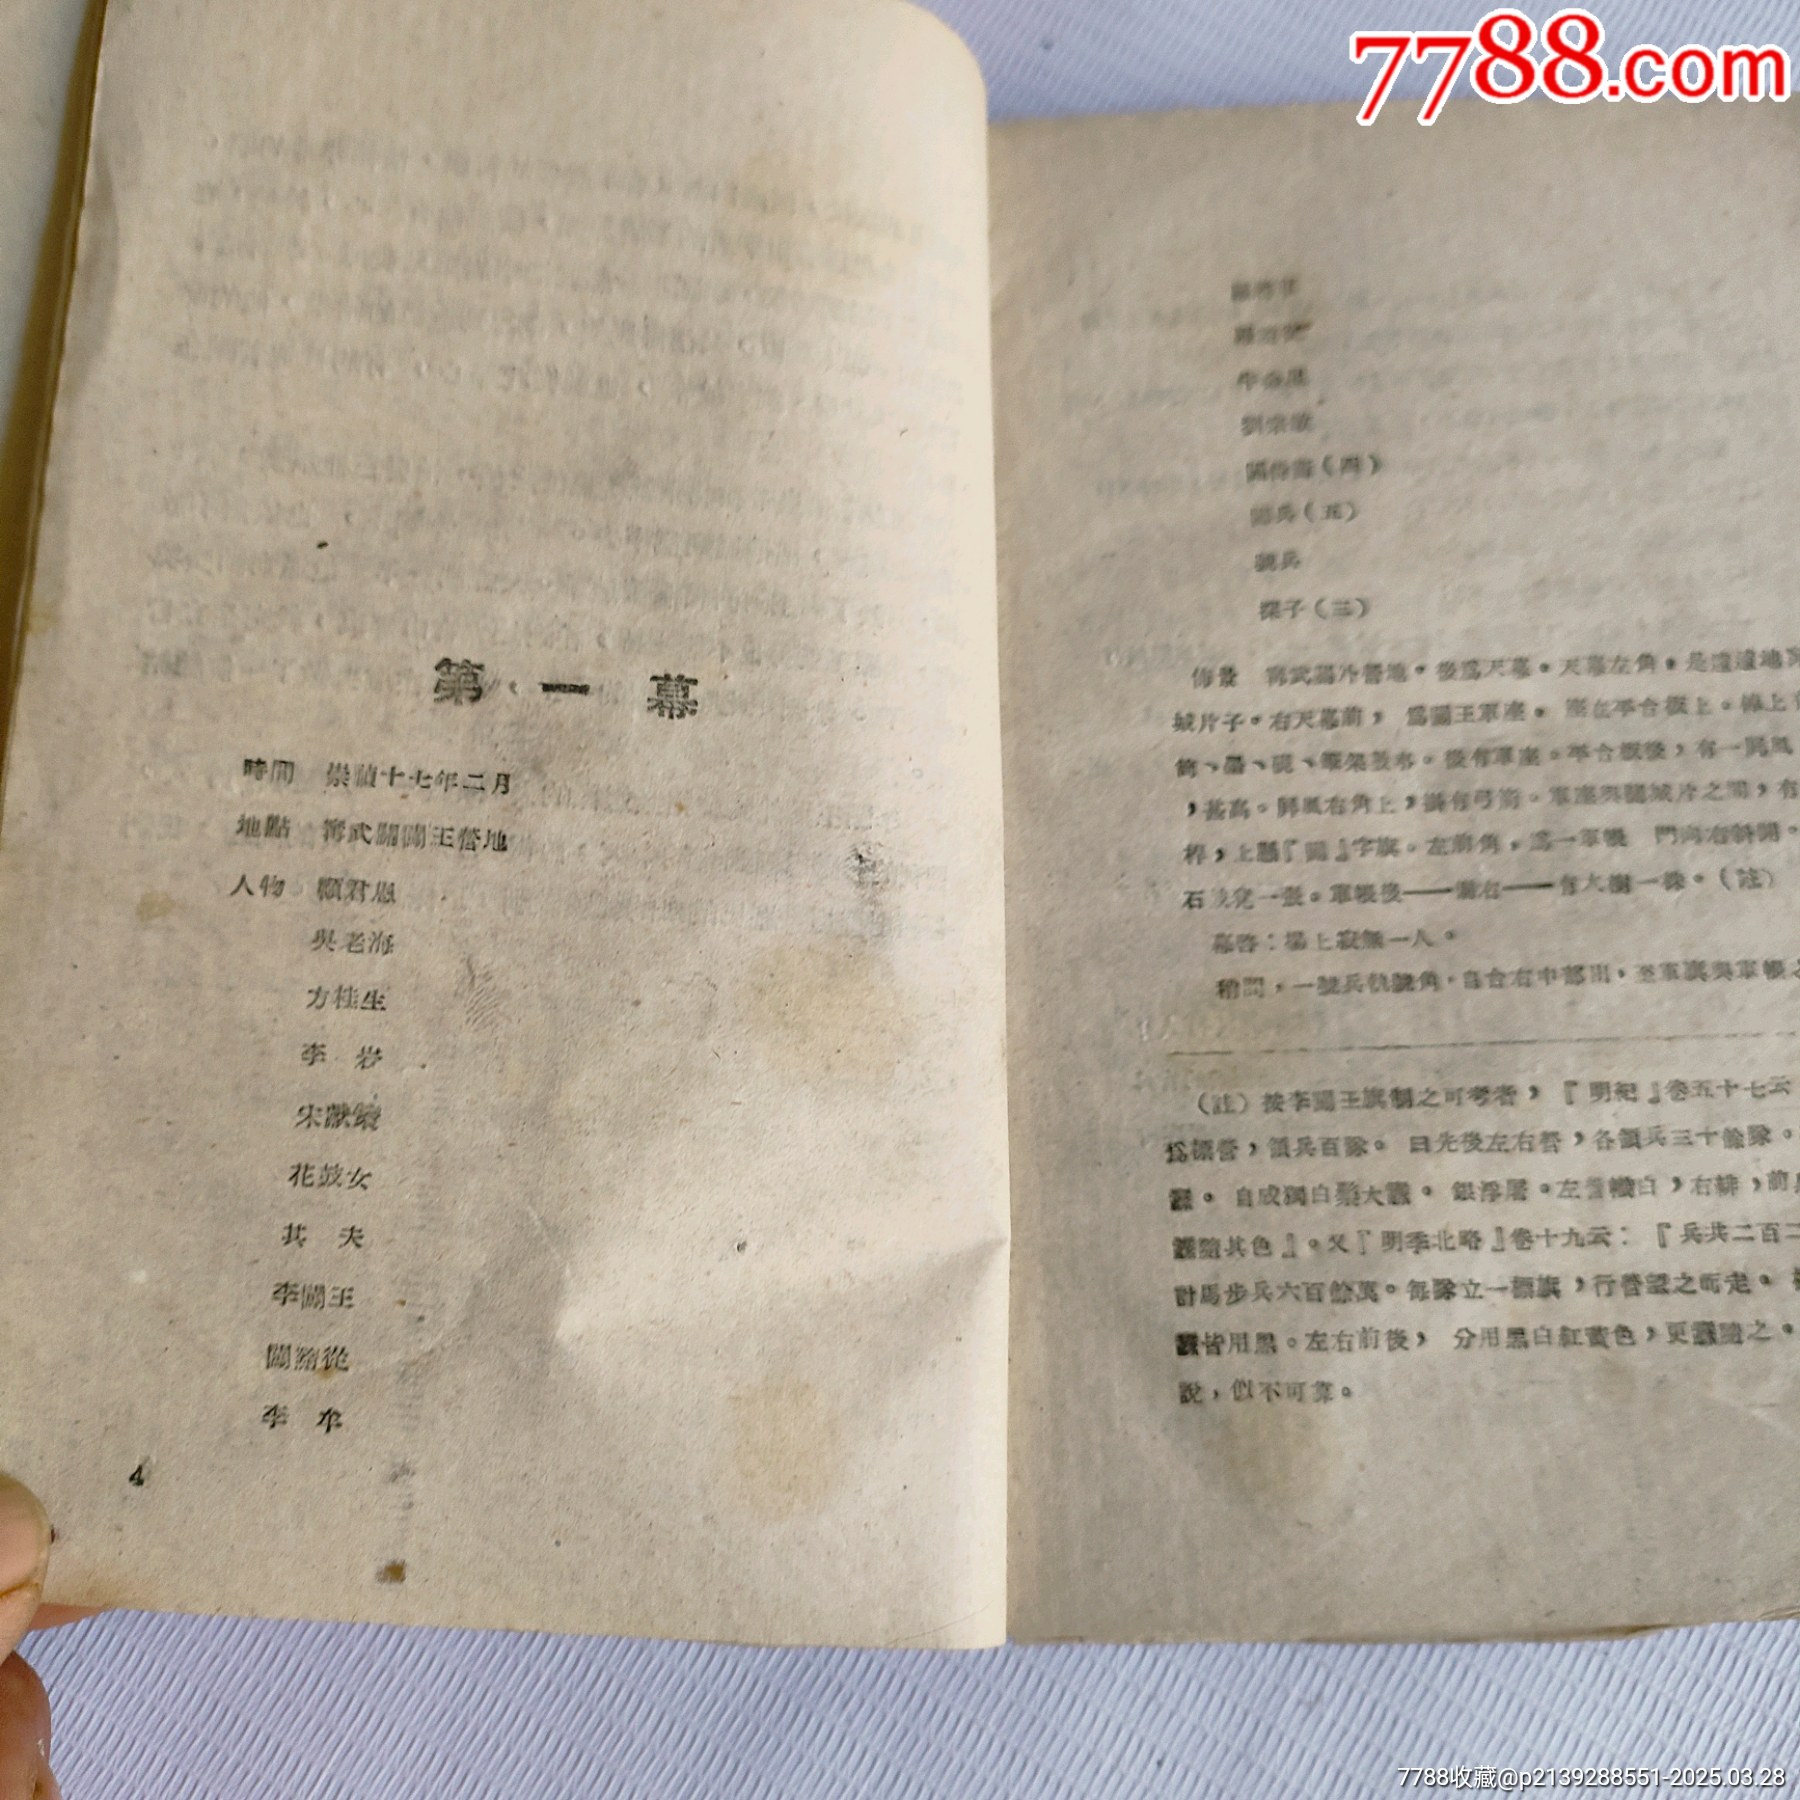 7788.com
第一幕
時間　崇禎十七年二月
地點　寗武關闖王營地
人物　顧君恩
吳老海
方桂生
李　岩
宋獻策
花鼓女
其　夫
李闖王
闖隨從
李　牟
4
牛金星
劉宗敏
闖侍衛（四）
闖兵（五）
號兵
探子（三）
佈景　寗武關片營地。後爲天幕。天幕左角，是遠遠地
城片子。右天幕前，爲闖王軍座。座在平台板上。
筒、墨、硯、筆架
，甚高。屏風右角上，掛有弓箭。軍座與關城片之間，有
桿，上懸『闖』字旗。左前角，爲一軍帳　門向右斜開。
石　　一張。軍帳後——前右——有大樹一株。（註）
幕啓：場上寂無一人。
稍間，一號兵執號角，自台右中部出，至軍旗與軍帳之
（註）按李闖王旗制之可考者，『明紀』卷五十七云
爲標營，領兵百隊。曰先後左右營，各領兵三十餘隊。
纛。自成獨白鬃大纛。銀浮屠。左營幟白，右緋，前
纛隨其色』。又『明季北略』卷十九云：『兵共二百二
計馬步兵六百餘萬。每隊立一標旗，行營望之而走。
纛皆用黑。左右前後，分用黑白紅黃色，更纛隨之。
說，似不可靠。
7788收藏@p2139288551-2025.03.28